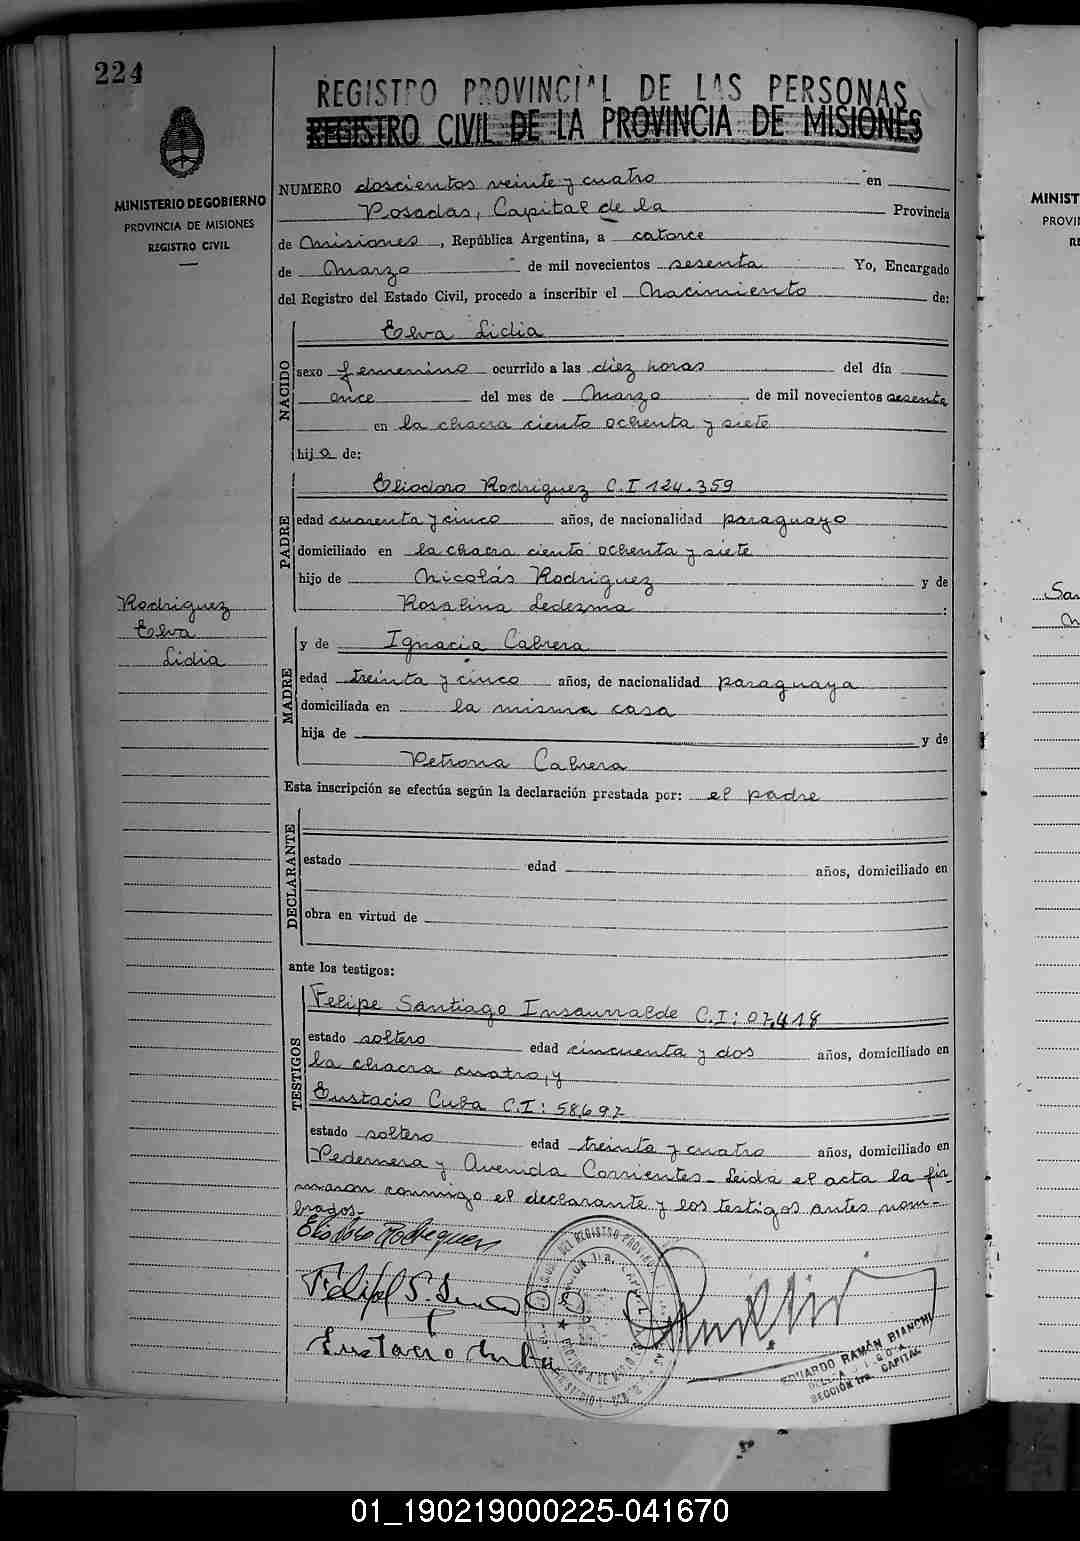 224
REGISTRO PROVINCIAL DE LAS PERSONAS
REGISTRO CIVIL DE LA PROVINCIA DE MISIONES
MINISTERIO DE GOBIERNO
PROVINCIA DE MISIONES
REGISTRO CIVIL
NUMERO doscientos veinte y cuatro en
Posadas, Capital de la Provincia
de Misiones, República Argentina, a catorce
de Marzo de mil novecientos sesenta Yo, Encargado
del Registro del Estado Civil, procedo a inscribir el Nacimiento de:
NACIDO
Elva Lidia
sexo femenino ocurrido a las diez horas del día
once del mes de Marzo de mil novecientos sesenta
en la chacra ciento ochenta y siete
hija de:
PADRE
Eliodoro Rodriguez C.I 124.359
edad cuarenta y cinco años, de nacionalidad paraguayo
domiciliado en la chacra ciento ochenta y siete
hijo de Nicolás Rodriguez y de
Rosalina Ledezma :
Rodriguez
Elva
Lidia
MADRE
y de Ignacia Cabrera
edad treinta y cinco años, de nacionalidad paraguaya
domiciliada en la misma casa
hija de y de
Petrona Cabrera
Esta inscripción se efectúa según la declaración prestada por: el padre
DECLARANTE
estado edad años, domiciliado en
obra en virtud de
ante los testigos:
TESTIGOS
Felipe Santiago Insaurralde C.I: 07,418
estado soltero edad cincuenta y dos años, domiciliado en
la chacra cuatro, y
Eustacio Cuba C.I: 58,697
estado soltero edad treinta y cuatro años, domiciliado en
Pedernera y Avenida Corrientes_ Leida el acta la fir-
maron conmigo el declarante y los testigos antes nom-
brados.-
Eliodoro Rodriguez
Felipe S.
Eustacio Cuba
EDUARDO RAMÓN BIANCHI
SECCIÓN 1ra. CAPITAL
MINIST
PROVI
RE
01_190219000225-041670